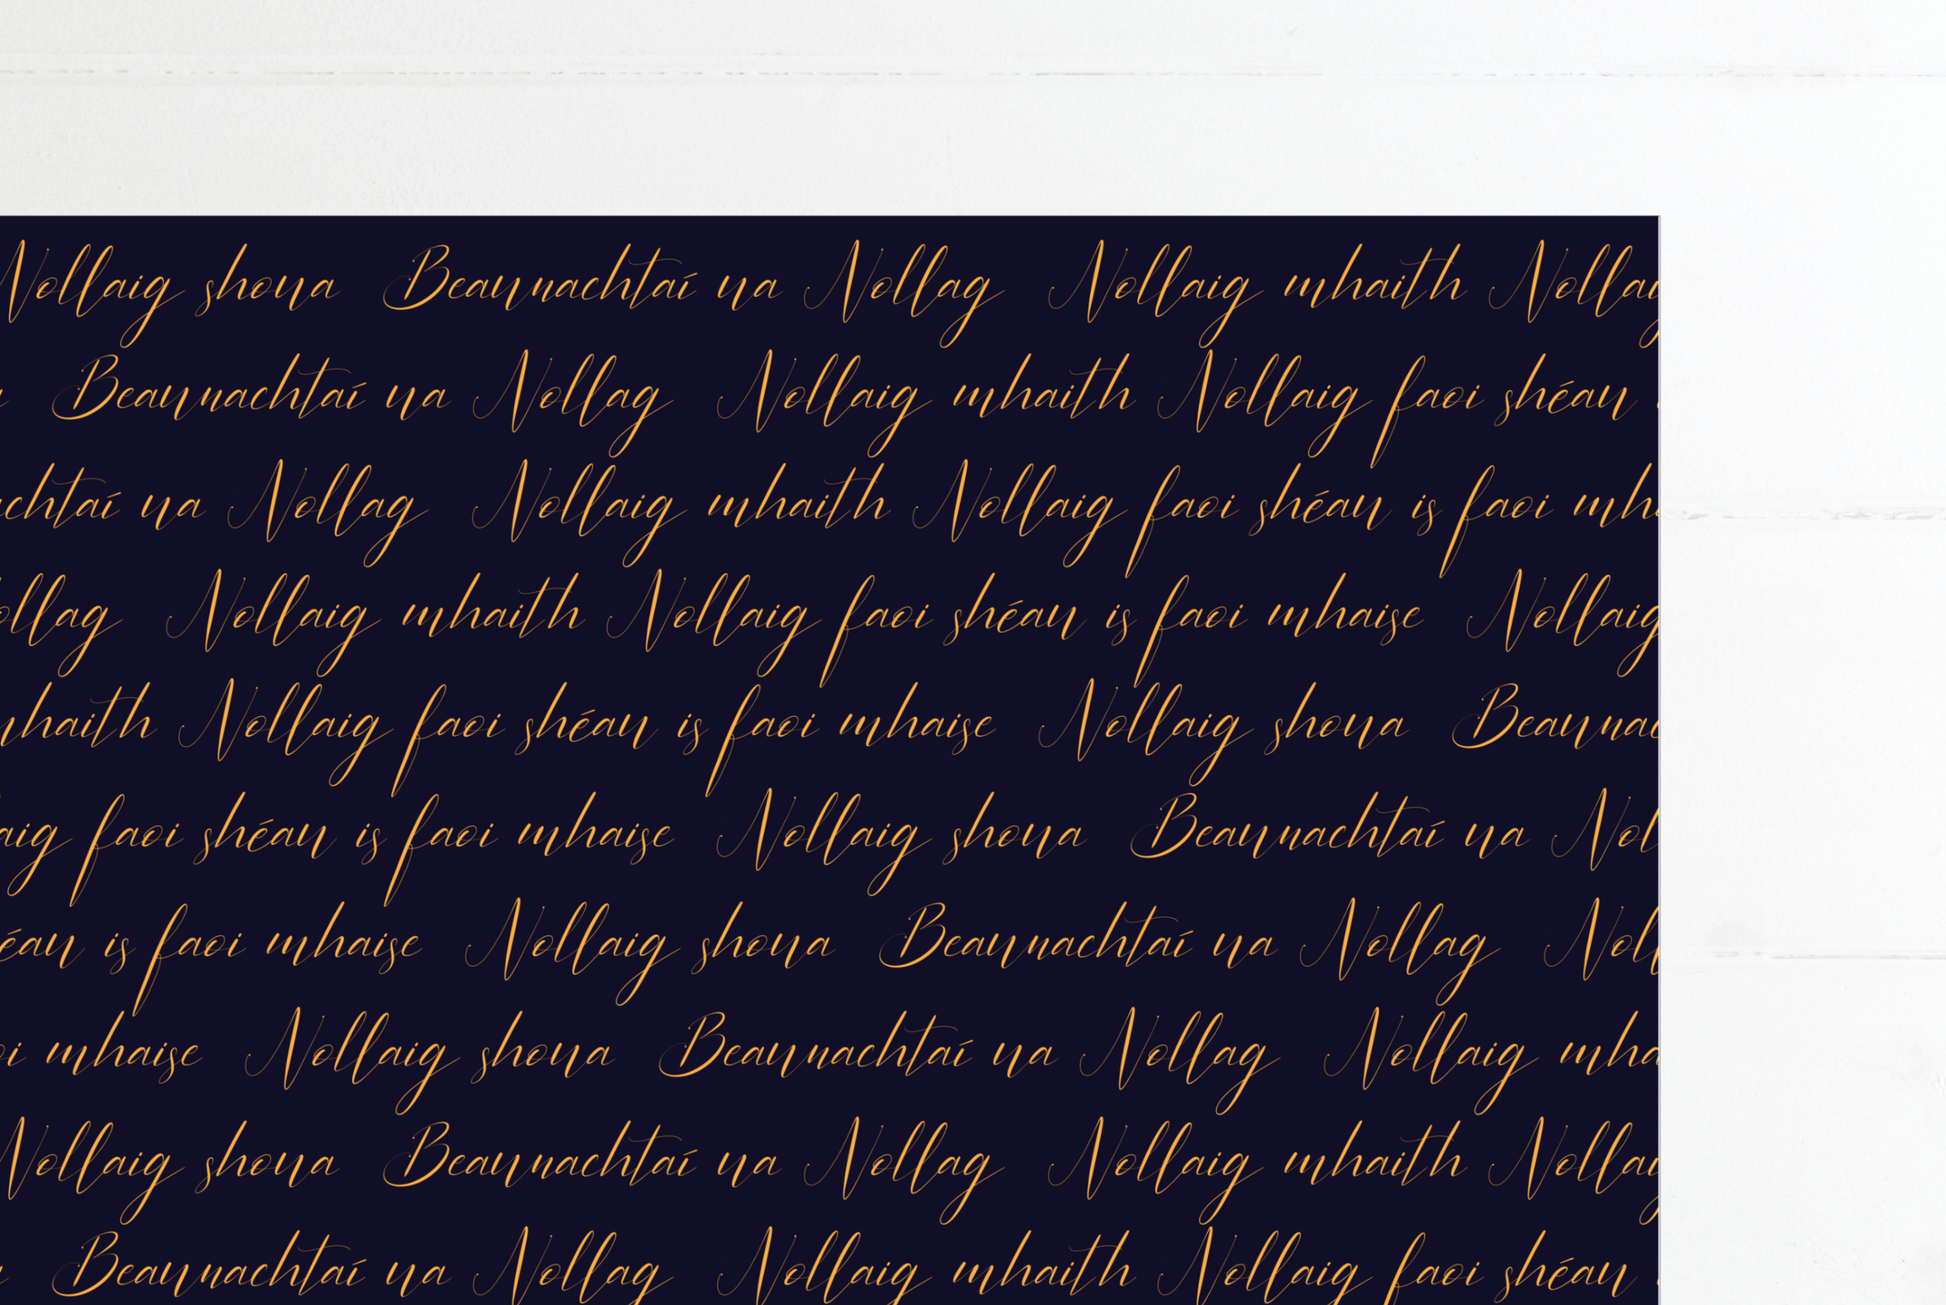 Nollaig shona Beannachtaí na Nollag Nollaig mhaith Nollaig
Beannachtaí na Nollag Nollaig mhaith Nollaig faoi shéan
achtaí na Nollag Nollaig mhaith Nollaig faoi shéan is faoi mha
ollag Nollaig mhaith Nollaig faoi shéan is faoi mhaise Nollaig
mhaith Nollaig faoi shéan is faoi mhaise Nollaig shona Beannac
aig faoi shéan is faoi mhaise Nollaig shona Beannachtaí na Nol
éan is faoi mhaise Nollaig shona Beannachtaí na Nollag Noll
oi mhaise Nollaig shona Beannachtaí na Nollag Nollaig mha
Nollaig shona Beannachtaí na Nollag Nollaig mhaith Nollaig
Beannachtaí na Nollag Nollaig mhaith Nollaig faoi shéan